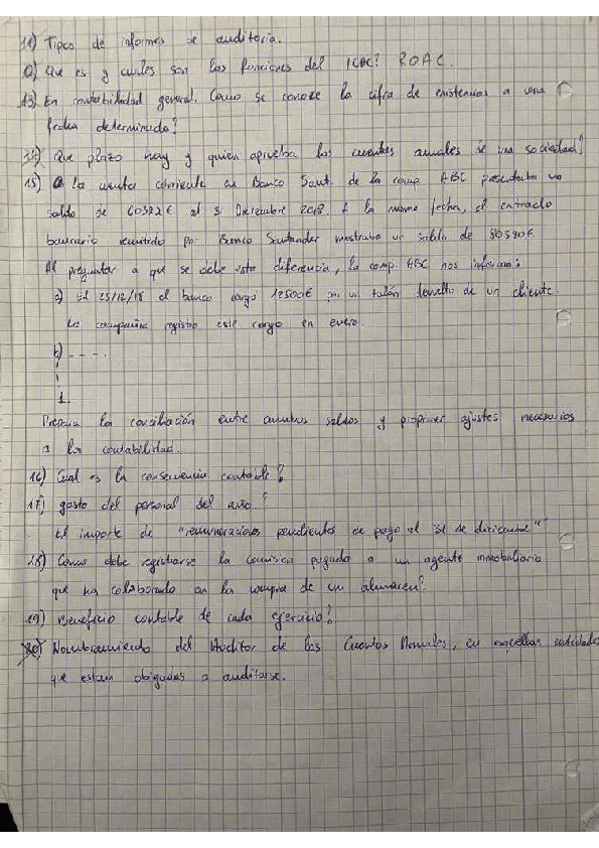 11) Tipos de informes de auditoria.
Que es y cuales son las funciones del ICAC? ROAC.
13) En contabilidad general. Como se conoze la cifra de existencias a una
fecha determinada?
14) Que plazo hay y quien aprueba las cuentas anuales de una sociedad?
15) La cuenta corriente en Banco Sant. de la comp. ABC presentaba un
saldo de 60322€ al 31 Diciembre 2018. A la misma fecha, el extracto
bancario remitido por Banco Santander mostraba un saldo de 80590€.
Al preguntar a que se debe esta diferencia, la comp. ABC nos informa:
a) El 25/12/18 el banco cargo 12500€ por un talón devuelto de un cliente.
La compañia registro este cargo en enero.
b) - - - -.
Prepara la conciliación entre ambos saldos y proponer ajustes necesarios
a la contabilidad.
16) Cual es la consecuencia contable?
17) gasto del personal del año?
El importe de "remuneraciones pendientes de pago al 31 de diciembre"
18) Como debe registrarse la comision pagada a un agente inmobiliario
que ha colaborado en la compra de un almacen?
19) Beneficio contable de cada ejercicio?
20) Nombramiento del Auditor de las Cuentas Anuales, en aquellas entidades
que estan obligadas a auditarse.